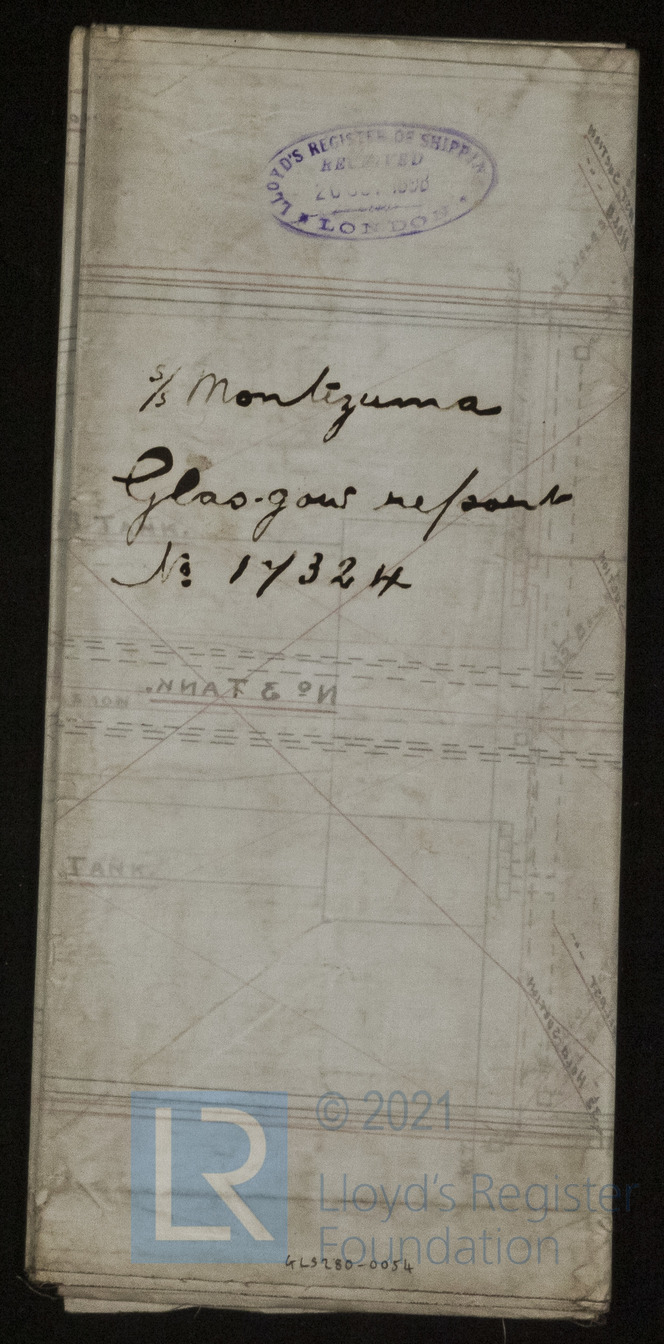 LLOYD'S REGISTER OF SHIPPING
RECEIVED
LONDON
s/s Montezuma
Glasgow report
No 17324
TANK.
No 3 TANK.
TANK.
LR
© 2021
Lloyd's Register
Foundation
GLS280-0054